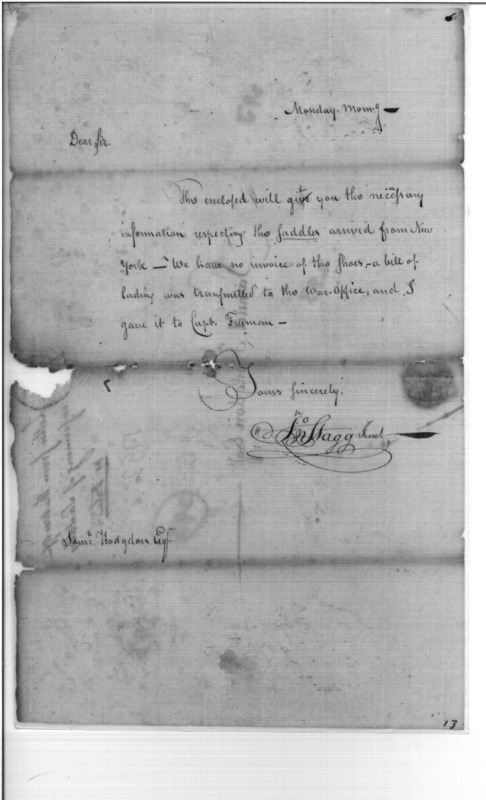 Monday Morn.g —
Dear Sir.
The enclosed will give you the necessary
information respecting the saddles arrived from New
York — We have no invoice of the Shoes, a bill of
lading was transmitted to the War Office, and I
gave it to Capt. Freeman —
Yours sincerely.
Jno Stagg Junr
Saml. Hodgdon Esq.
13